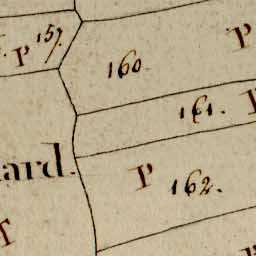 P 157.
P
160.
161. P
ard.
P 162.
P